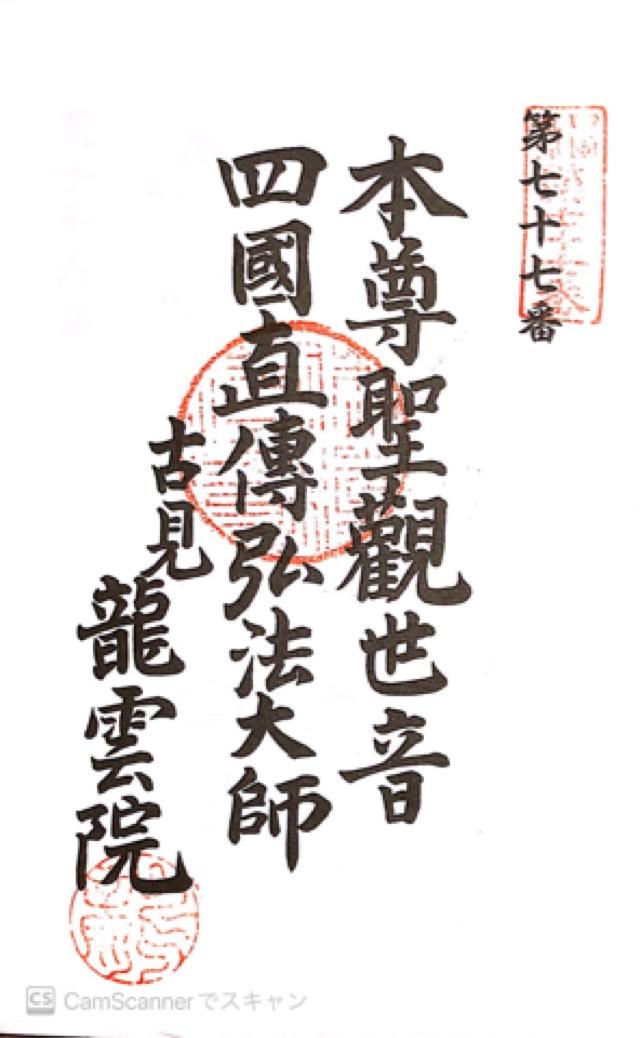 第七十七番
本尊聖觀世音
四國直傳弘法大師
古見
龍雲院
CS CamScannerでスキャン